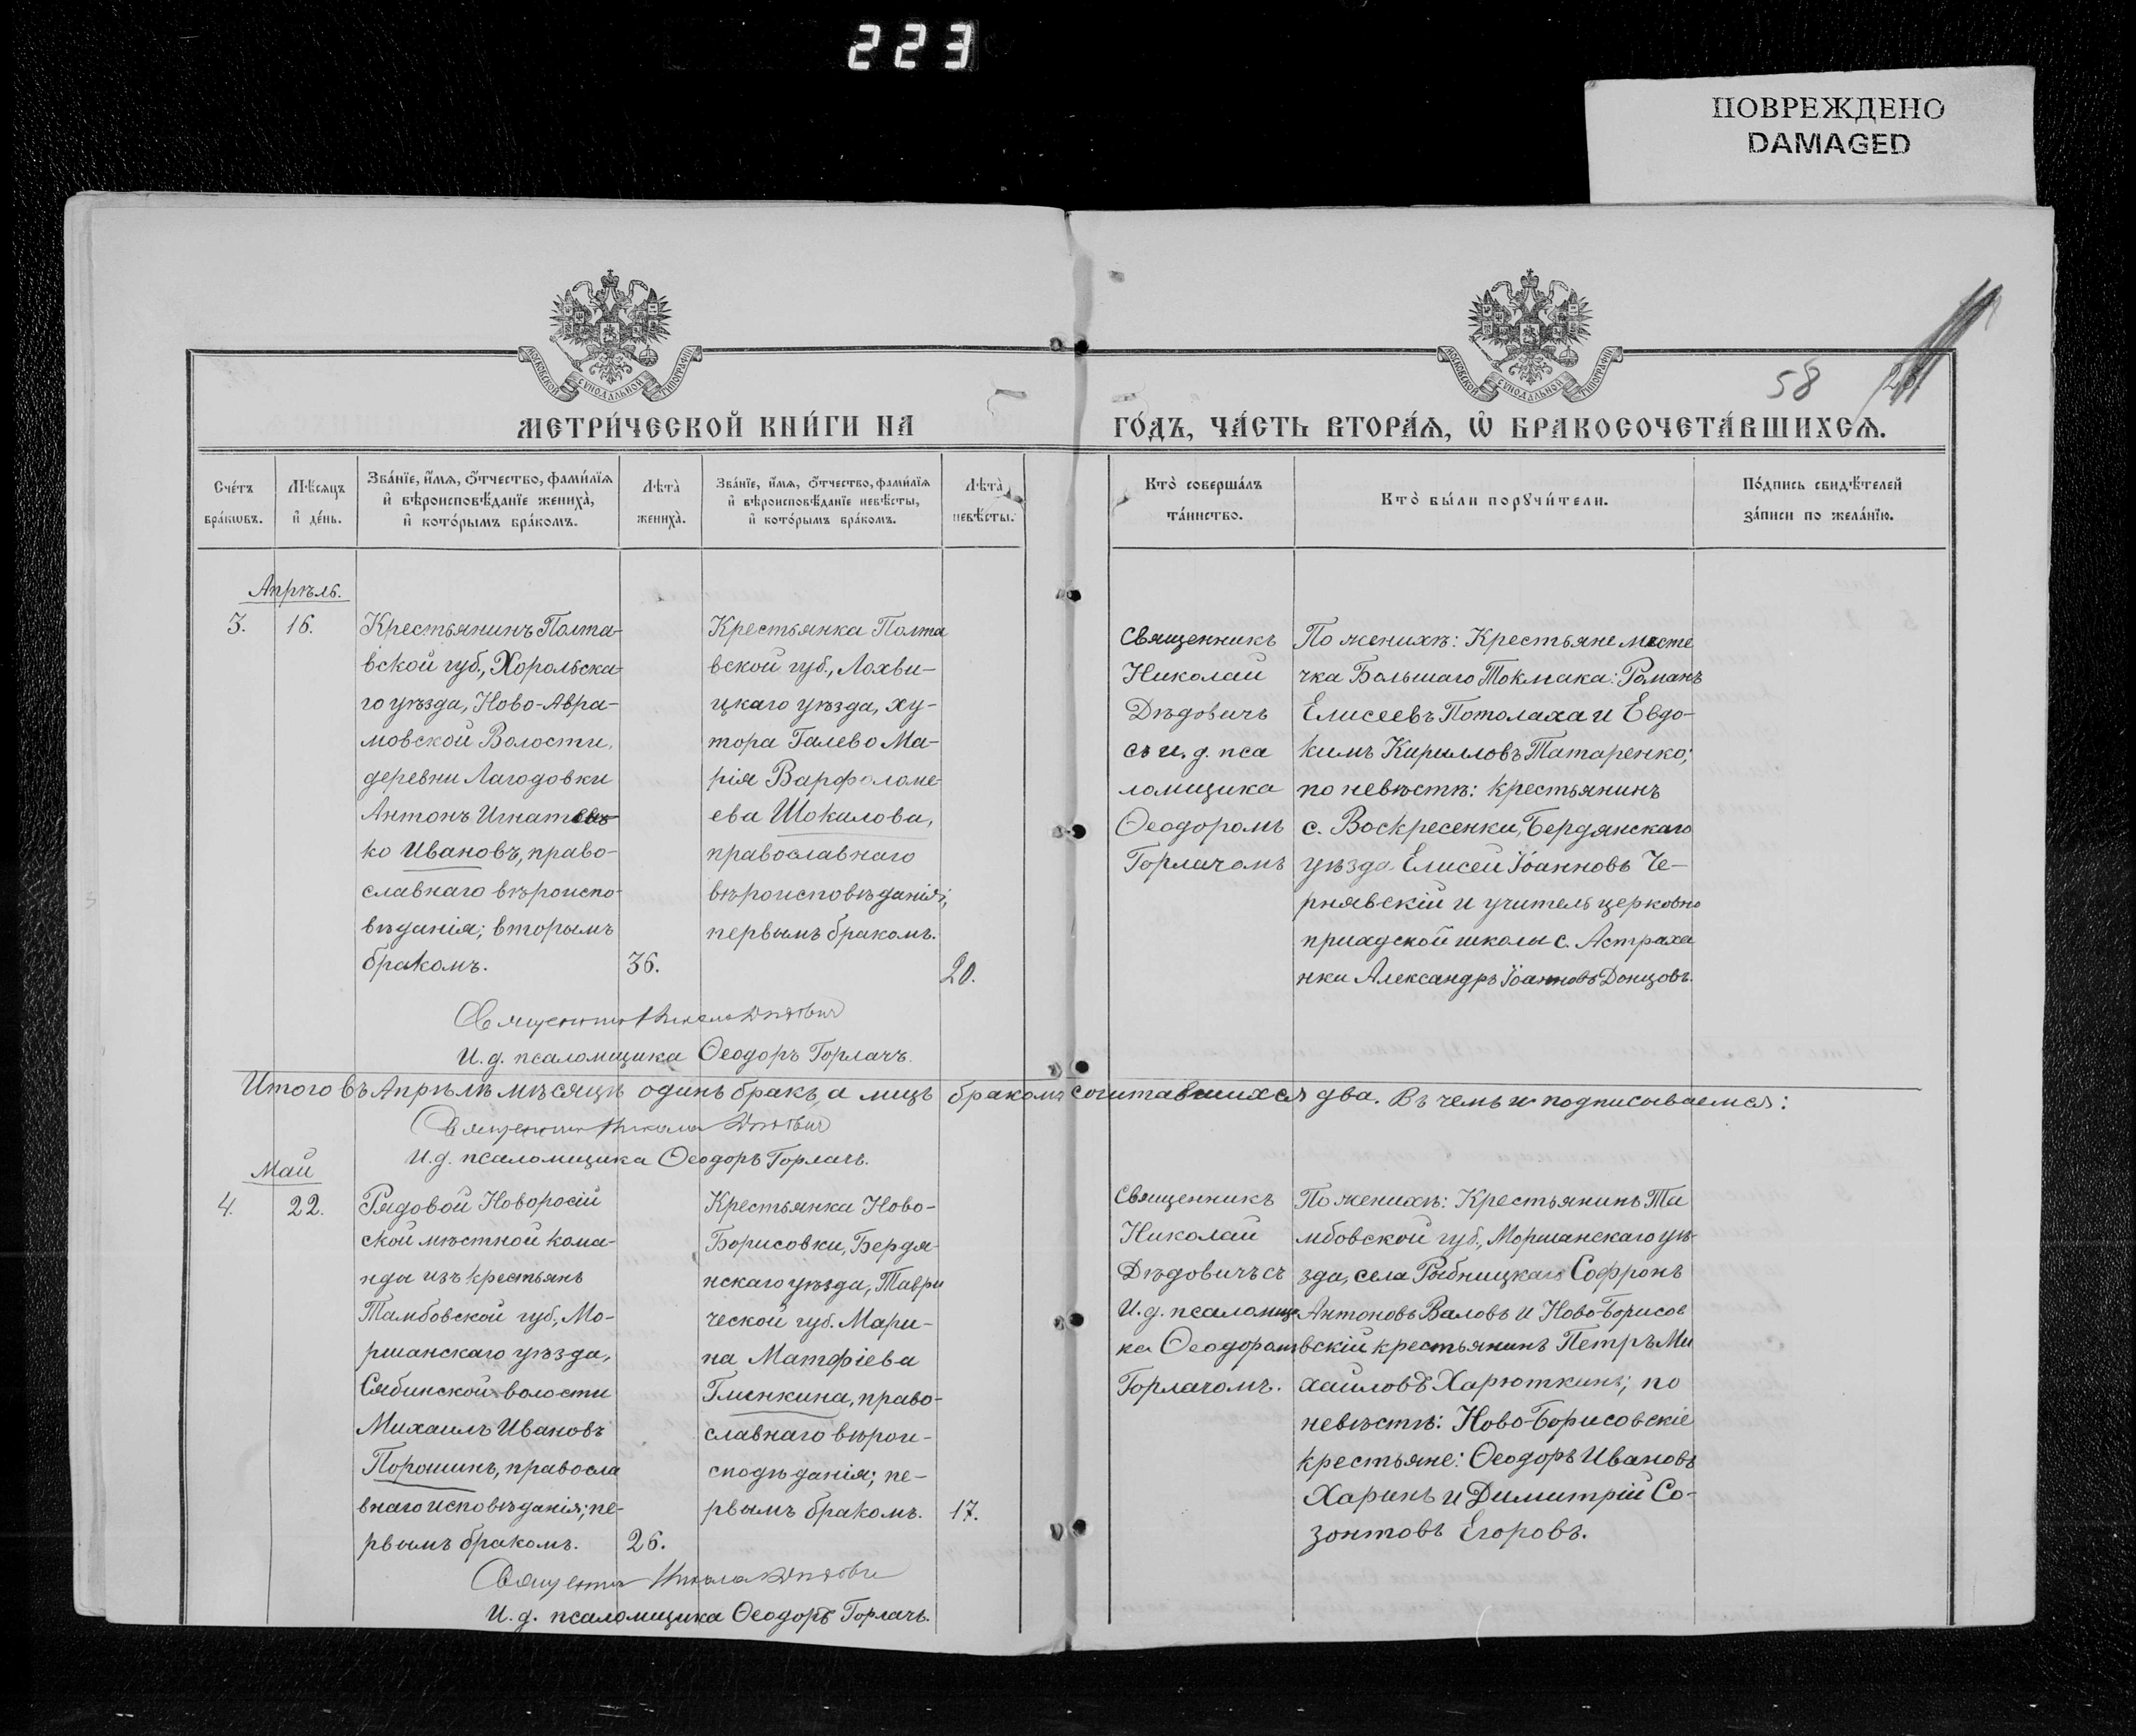 223
ПОВРЕЖДЕНО
DAMAGED
МОСКОВСКОЙ СѴНОДАЛЬНОЙ ТИПОГРАФІИ
МОСКОВСКОЙ СѴНОДАЛЬНОЙ ТИПОГРАФІИ
58
МЕТРИ́ЧЕСКОЙ КНИ́ГИ НА
ГО́ДЪ, ЧА́СТЬ ВТОРА́Ѧ, Ѿ БРАКОСОЧЕТА́ВШИХСѦ.
Сче́тъ
бра́кѡвъ.
Мѣ́сяцъ
и҆ де́нь.
Зва́нїе, и҆́мѧ, ѻ҆́тчество, фами́лїѧ
и҆ вѣроисповѣ́данїе жениха̀,
и҆ кото́рымъ бра́комъ.
Лѣта̀
жениха̀.
Зва́нїе, и҆́мѧ, ѻ҆́тчество, фами́лїѧ
и҆ вѣроисповѣ́данїе невѣ́сты,
и҆ кото́рымъ бра́комъ.
Лѣта̀
невѣ́сты.
Кто̀ соверша́лъ
та́инство.
Кто̀ бы́ли порꙋчи́тели.
По́дпись свидѣ́телей
за́писи по жела́нїю.
Апрѣль.
3.
16.
Крестьянинъ Полта-
вской губ., Хорольска-
го уѣзда, Ново-Авра-
мовской Волости,
деревни Лагодовки
Антонъ Игнатевъ
ко Ивановъ, право-
славнаго вѣроиспо-
вѣданія; вторымъ
бракомъ.
36.
Крестьянка Полта
вской губ., Лохви-
цкаго уѣзда, ху-
тора Галево Ма-
рія Варфоломе-
ева Шокалова,
православнаго
вѣроисповѣданія;
первымъ бракомъ.
20.
Священникъ
Николай
Дѣдовичъ
съ и. д. пса
ломщика
Ѳеодоромъ
Горлачомъ
По женихѣ: Крестьяне мѣсте
чка Большаго Токмака: Романъ
Елисеевъ Потолаха и Евдо-
кимъ Кирилловъ Татаренко;
по невѣстѣ: крестьянинъ
с. Воскресенки, Бердянскаго
уѣзда Елисей Іоанновъ Че-
рнявскій и учитель церковно
приадской школы с. Астраха
нки Александръ Іоанновъ Донцовъ.
Священникъ Николай Дѣдовичъ
И. д. псаломщика Ѳеодоръ Горлачъ.
Итого въ Апрѣлѣ мѣсяцѣ одинъ бракъ, а лицъ бракомъ сочитавшихся два. Въ чемъ и подписываемся:
Священникъ Николай Дѣдовичъ
И. д. псаломщика Ѳеодоръ Горлачъ.
Май
4.
22.
Рядовой Новоросій
ской мѣстной кома-
нды изъ крестьянъ
Тамбовской губ., Мо-
ршанскаго уѣзда,
Сябинской волости
Михаилъ Ивановъ
Порошинъ, правосла
внаго исповѣданія; пе-
рвымъ бракомъ.
26.
Крестьянка Ново-
Борисовки, Бердя-
нскаго уѣзда, Таври
ческой губ. Мари-
на Матфіева
Глинкина, право-
славнаго вѣрои-
сподѣданія; пе-
рвымъ бракомъ.
17.
Священникъ
Николай
Дѣдовичъ съ
И. д. псаломщи
ка Ѳеодоромъ
Горлачомъ.
По женихѣ: Крестьянинъ Та
мбовской губ., Моршанскаго уѣ-
зда, села Рыбницкаго Софронъ
Антоновъ Валовъ и Ново-Борисов
вскій крестьянинъ Петръ Ми
хаиловъ Харюткинъ; по
невѣстѣ: Ново-Борисовскіе
крестьяне: Ѳеодоръ Ивановъ
Харинъ и Димитрій Со-
зонтовъ Егоровъ.
Священникъ Николай Дѣдовичъ
И. д. псаломщика Ѳеодоръ Горлачъ.